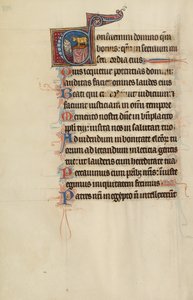 Confitemini domino quoniam
bonus: qm̄ in seculum mi
sericordia eius
Quis loquetur potentias domini
auditas faciet omnes laudes eius
Beati qui custodiunt iudicium et
faciunt iusticiam in omni tempore
Memento nostri dn̄e in bn̄placito
ppli tui: visita nos in salutari tuo
Ad videndum in bonitate elector tu
orum ad letandum in leticia gentis
tue: ut lauderis cum hereditate tua
Peccauimus cum pr̄ibz nr̄is: iniuste
egimus iniquitatem fecimus
Patres nr̄i in egypto n̄ intellexerunt